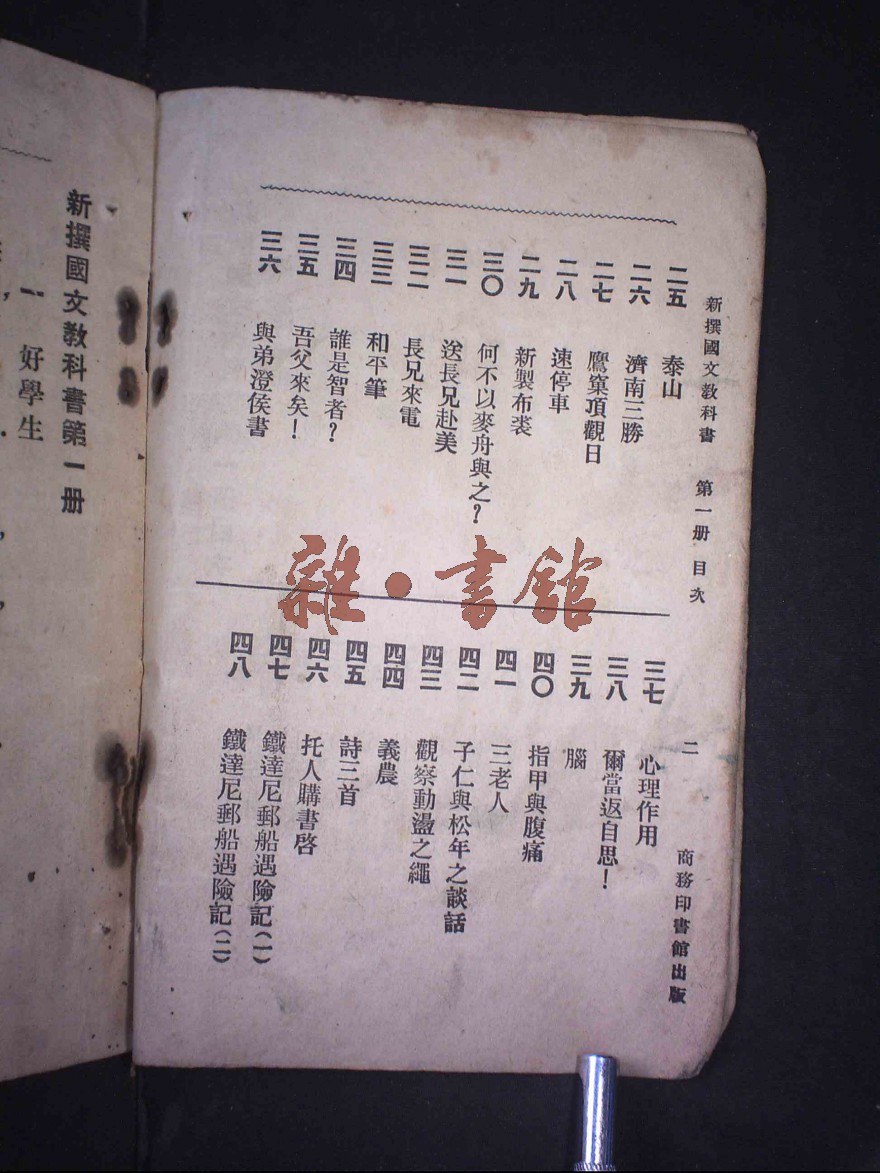 新撰國文教科書 第一册 目次 二 商務印書館出版
二五 泰山
二六 濟南三勝
二七 鷹窠頂觀日
二八 速停車
二九 新製布裘
三〇 何不以麥舟與之？
三一 送長兄赴美
三二 長兄來電
三三 和平筆
三四 誰是智者？
三五 吾父來矣！
三六 與弟澄侯書
三七 心理作用
三八 爾當返自思！
三九 腦
四〇 指甲與腹痛
四一 三老人
四二 子仁與松年之談話
四三 觀察動盪之繩
四四 義農
四五 詩三首
四六 托人購書啓
四七 鐵達尼郵船遇險記(一)
四八 鐵達尼郵船遇險記(二)
雜·書館
新撰國文教科書第一册
一 好學生